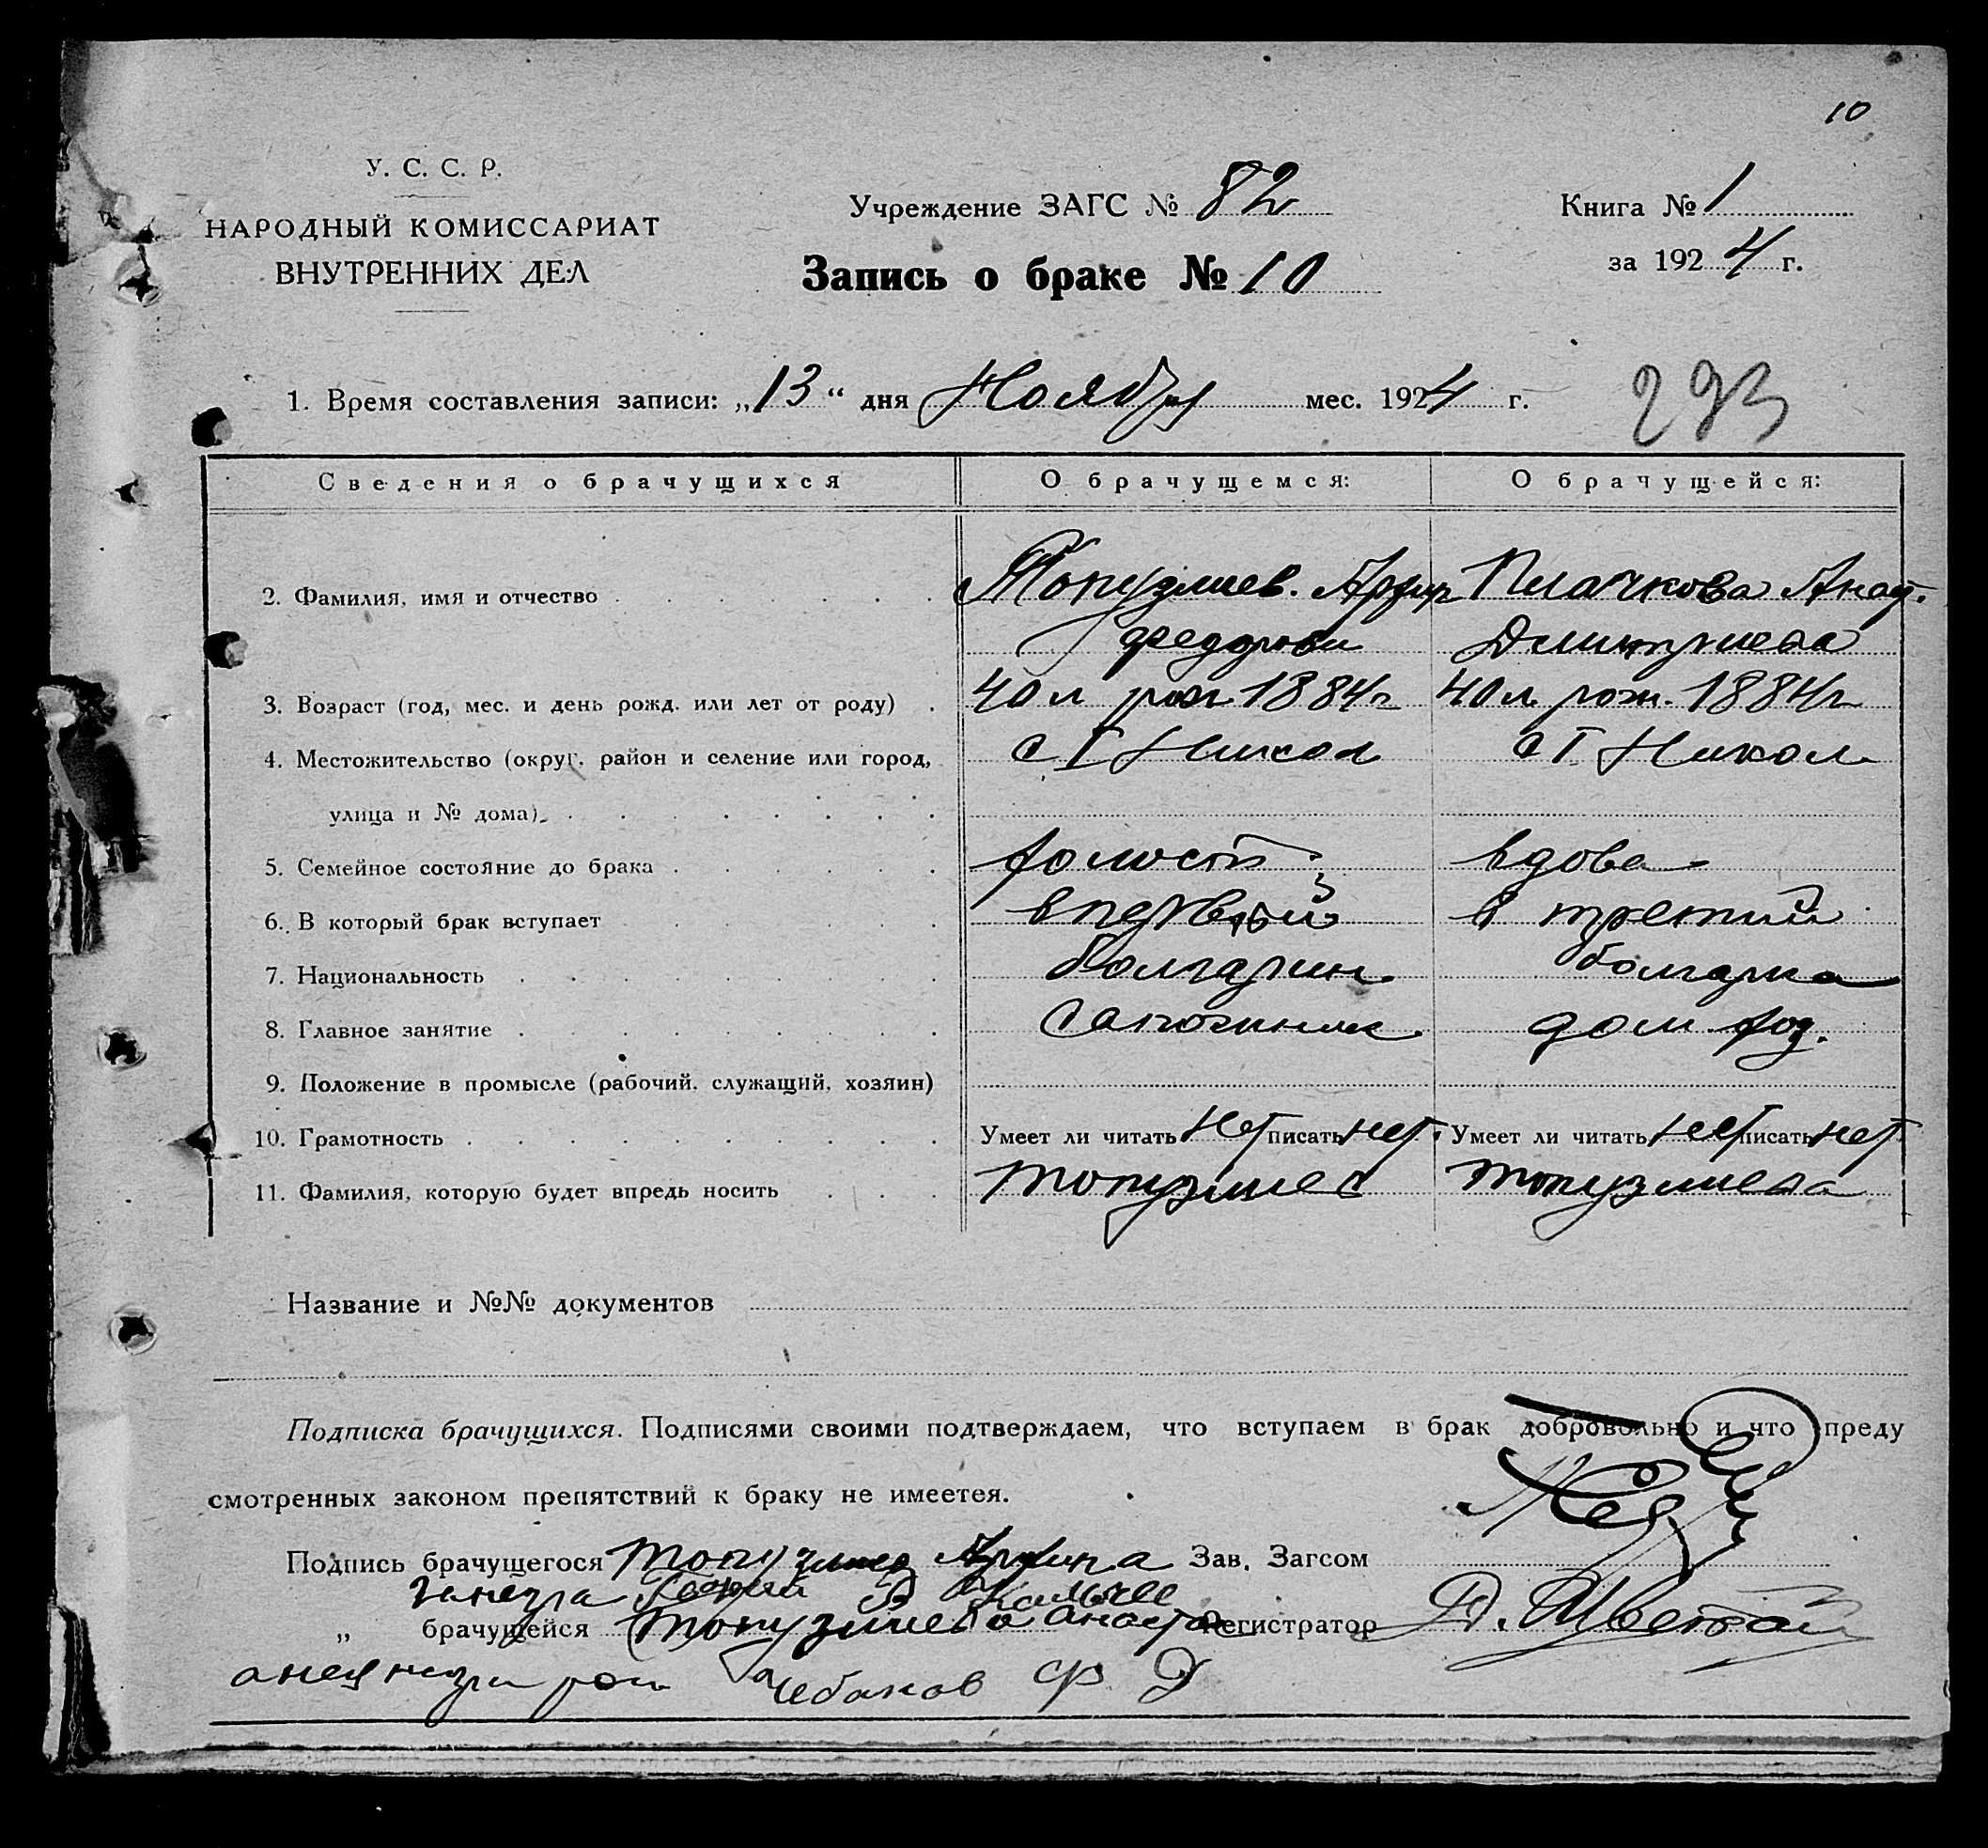 10
У. С. С. Р.
НАРОДНЫЙ КОМИССАРИАТ
ВНУТРЕННИХ ДЕЛ
Учреждение ЗАГС № 82
Книга № 1
Запись о браке № 10
за 1924 г.
1. Время составления записи: „13“ дня Ноября мес. 1924 г.
293
Сведения о брачущихся О брачущемся: О брачущейся:
2. Фамилия, имя и отчество Топузлиев. Плачкова Анас.
Федорови Дмитриева
3. Возраст (год, мес. и день рожд. или лет от роду) 40 л рож 1884 г 40 л. рож. 1884 г
4. Местожительство (округ, район и селение или город, с I Никол с I Никол
улица и № дома)
5. Семейное состояние до брака холост вдова
6. В который брак вступает в первый в третий
7. Национальность болгарин болгарка
8. Главное занятие Сапожник. дом. хоз.
9. Положение в промысле (рабочий, служащий, хозяин)
10. Грамотность Умеет ли читать нет писать нет. Умеет ли читать нет писать нет
11. Фамилия, которую будет впредь носить Топузлиев Топузлиева
Название и №№ документов
Подписка брачущихся. Подписями своими подтверждаем, что вступаем в брак добровольно и что преду
смотренных законом препятствий к браку не имеетея.
Подпись брачущегося Топузлиев Зав. Загсом
„ брачущейся Топузлиева Регистратор Д.
Чебанов Ф Д